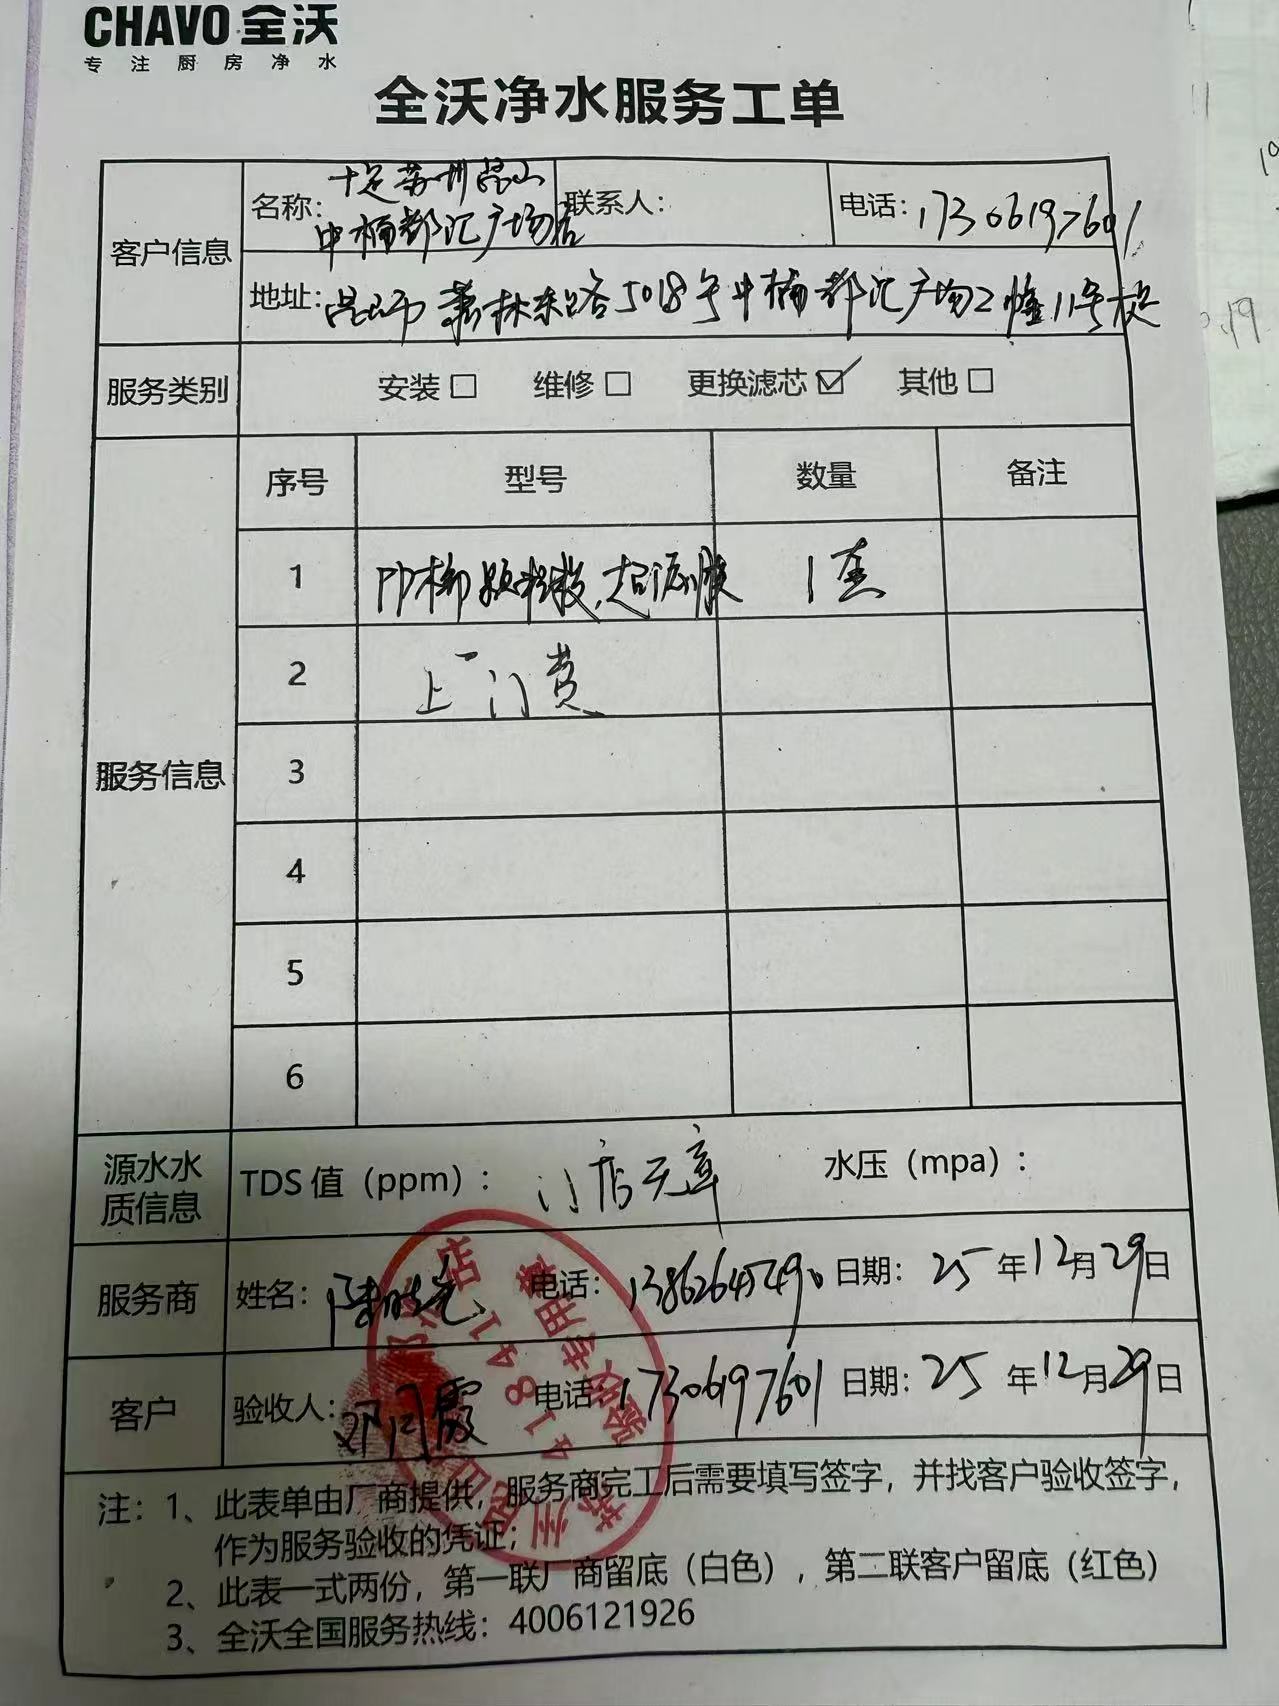 CHAVO 全沃
专注厨房净水
全沃净水服务工单
客户信息
名称: 十足苏州昆山
中楠都汇广场店
联系人:
电话: 17306197601
地址: 昆山市萧林东路5018号中楠都汇广场2幢11号
服务类别 安装□ 维修□ 更换滤芯☑ 其他□
服务信息
序号 型号 数量 备注
1 PP棉 颗粒炭、超滤膜 1套
2 上门费
3
4
5
6
源水水质信息
TDS 值（ppm）: 门店无章
水压（mpa）:
服务商 姓名: 电话: 13862645490 日期: 25年12月29日
客户 验收人: 邓闩霞 电话: 17306197601 日期: 25年12月29日
注: 1、此表单由厂商提供, 服务商完工后需要填写签字, 并找客户验收签字,
作为服务验收的凭证;
2、此表一式两份, 第一联厂商留底（白色）, 第二联客户留底（红色）
3、全沃全国服务热线: 4006121926